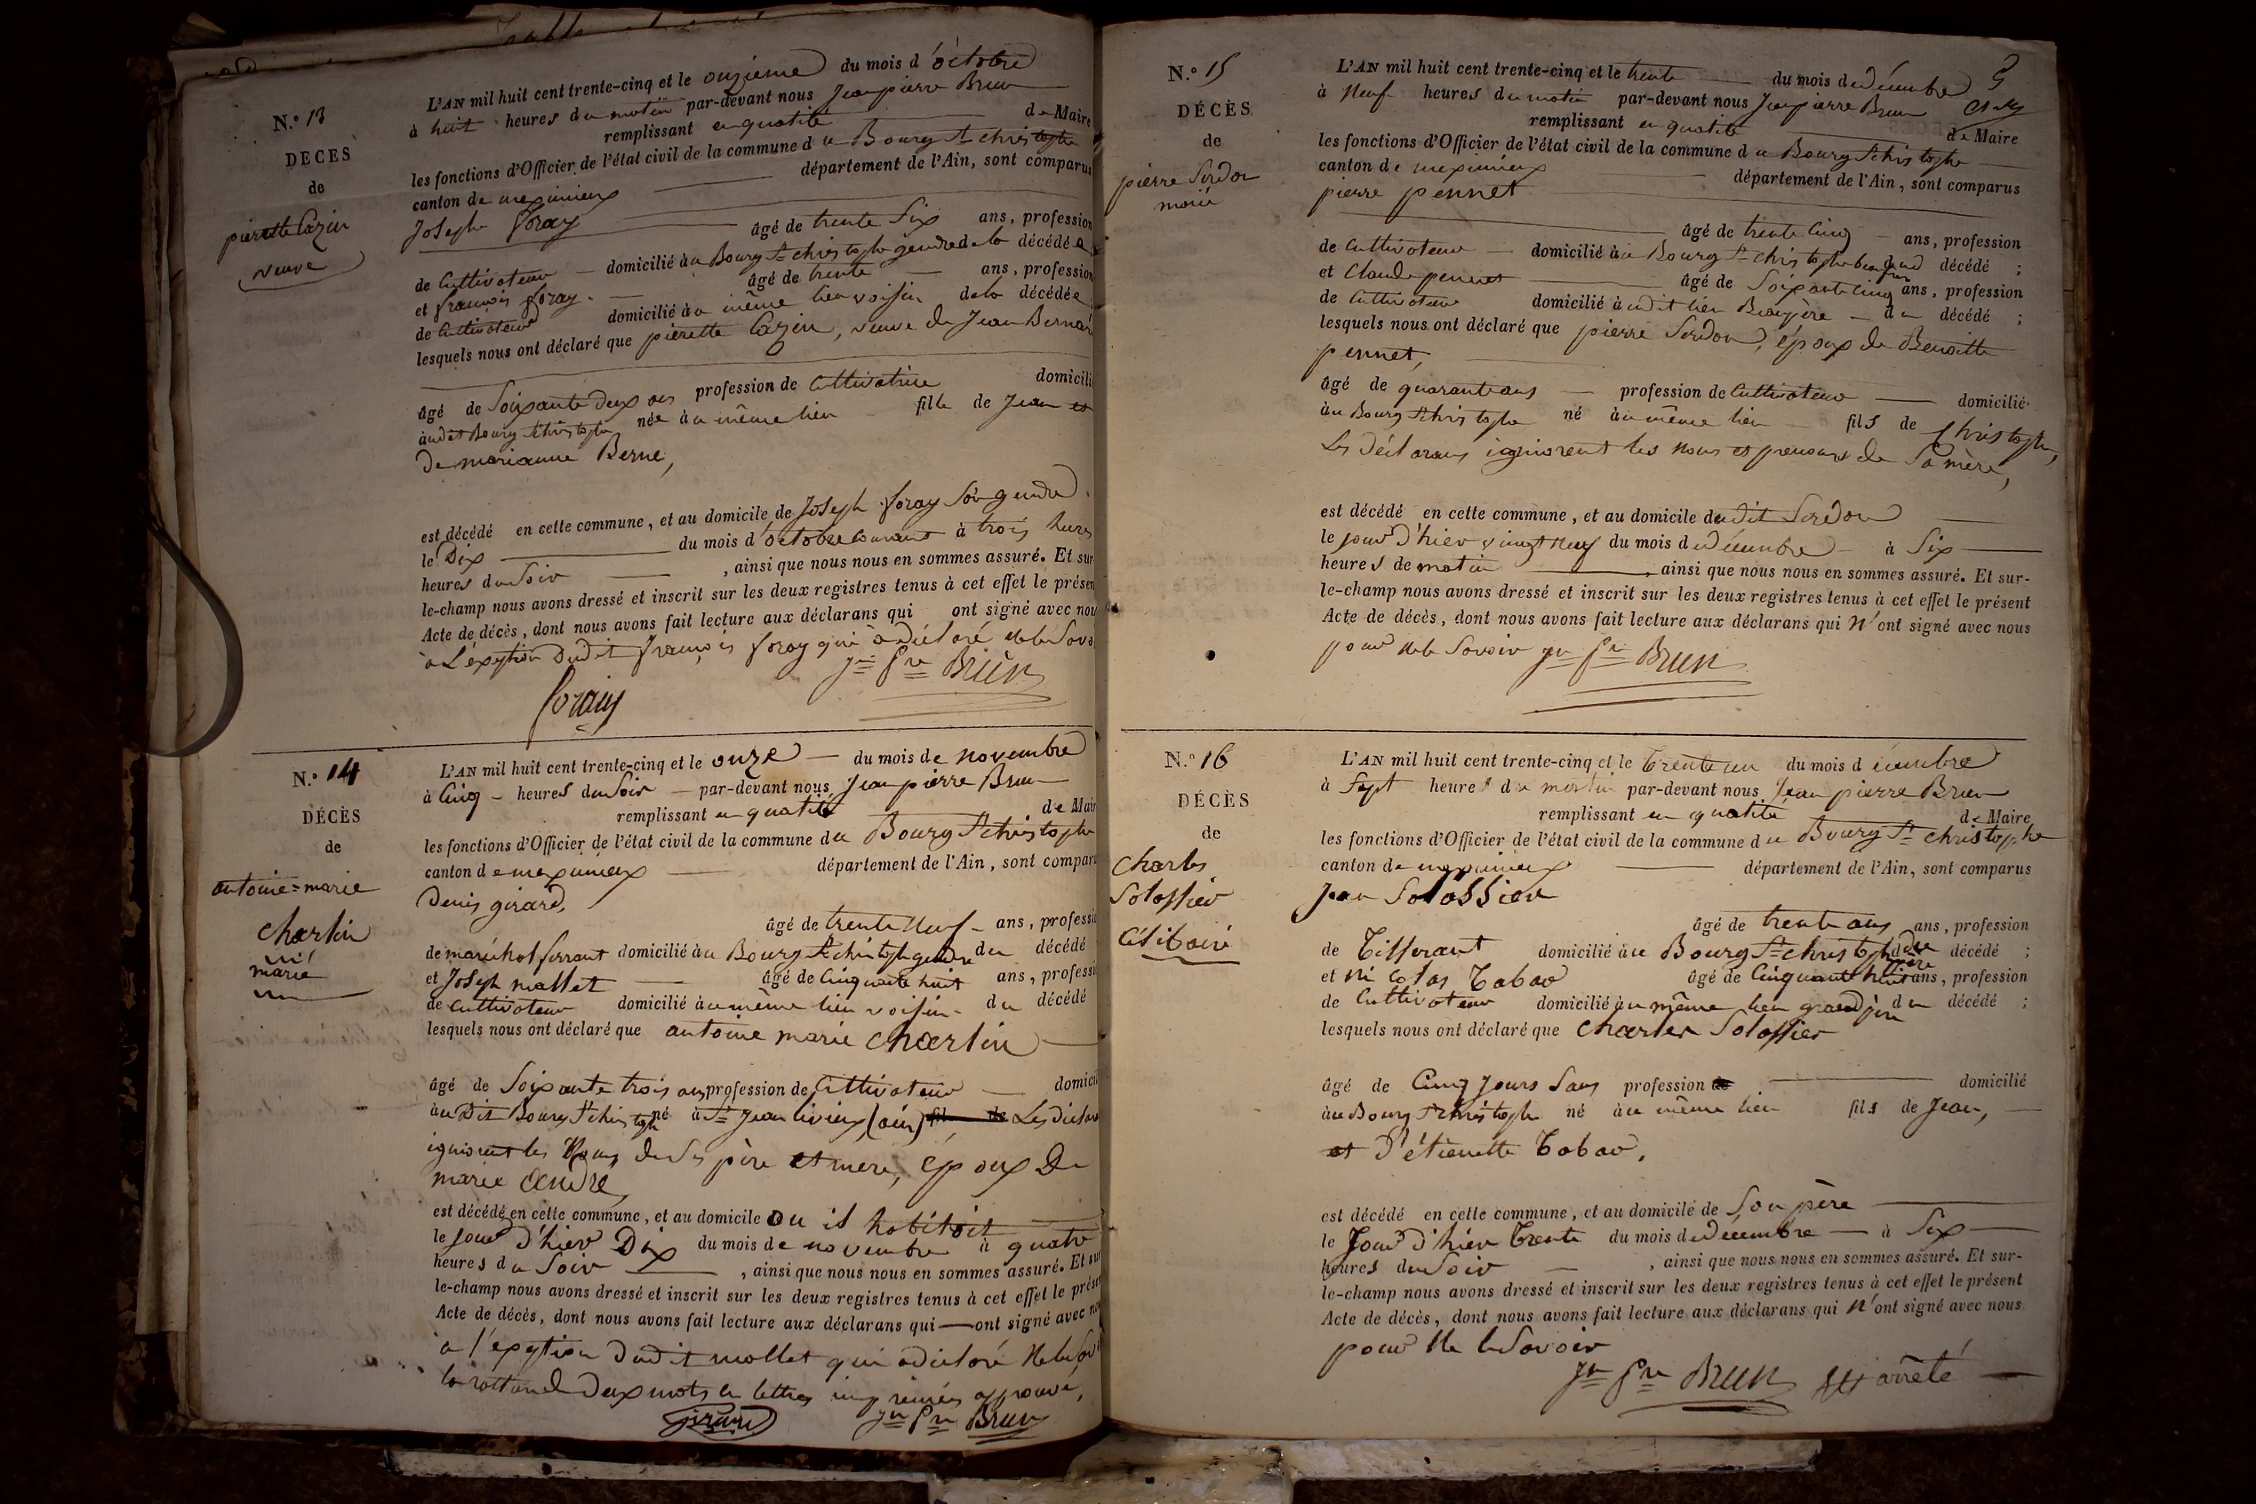 N.° 13
DÉCÈS
de
pierrette Cazin
veuve
L'AN mil huit cent trente-cinq et le onzieme du mois d'octobre
à huit heures du matin par-devant nous Jean pierre Brun
remplissant en qualité de Maire
les fonctions d'Officier de l'état civil de la commune du Bourg St christophe
canton de meximieux département de l'Ain, sont comparus
Joseph foray
âgé de trente Six ans, profession
de Cultivateur domicilié au Bourg St christophe gendre de la décédée
et françois foray âgé de trente ans, profession
de Cultivateur domicilié au même lieu voisin de la décédée
lesquels nous ont déclaré que pierrette Cazin, veuve de Jean Bernard
âgé de Soixante deux ans profession de Cultivatrice domicili
audit Bourg St christophe née au même lieu fille de Jean et
de marianne Berne,
est décédé en cette commune, et au domicile de Joseph foray Son gendre
le Dix du mois d'octobre courant à trois heures
heures du Soir, ainsi que nous nous en sommes assuré. Et sur
le-champ nous avons dressé et inscrit sur les deux registres tenus à cet effet le présen
Acte de décès, dont nous avons fait lecture aux déclarans qui ont signé avec nou
à L'exeption dudit françois foray qui a déclaré ne le Savo
foray Jn Pre Brun
N.° 14
DÉCÈS
de
antoine=marie
charlin
marié
L'AN mil huit cent trente-cinq et le onze du mois de novembre
à Cinq heures du Soir par-devant nous Jean pierre Brun
remplissant en qualité de Mair
les fonctions d'Officier de l'état civil de la commune du Bourg St christophe
canton de meximieux département de l'Ain, sont compar
Denis girard,
âgé de trente neuf ans, professi
de maréchal ferrant domicilié au Bourg St christophe gendre du décédé
et Joseph mallet âgé de Cinquante huit ans, professi
de Cultivateur domicilié au même lieu voisin du décédé
lesquels nous ont déclaré que antoine marie charlin
âgé de Soixante trois ans profession de Cultivateur domici
au Dit Bourg St christophe né à St Jean (ain) Les déclara
ignorent les Noms de Ses père et mere, époux De
marie andré,
est décédé en cette commune, et au domicile ou il habitoit
le Jour d'hier Dix du mois de novembre à quatre
heures du Soir, ainsi que nous nous en sommes assuré. Et su
le-champ nous avons dressé et inscrit sur les deux registres tenus à cet effet le prése
Acte de décès, dont nous avons fait lecture aux déclarans qui ont signé avec no
à l'exeption dudit mallet qui a déclaré Ne le Sav
la rature de Deux mots en lettres imprimées approuvé,
girard Jn Pre Brun
N.° 15
DÉCÈS
de
pierre Serdon
marié
L'AN mil huit cent trente-cinq et le trente du mois de décembre
à Neuf heures du matin par-devant nous Jean pierre Brun
remplissant en qualité de Maire
les fonctions d'Officier de l'état civil de la commune du Bourg St christophe
canton de meximieux département de l'Ain, sont comparus
pierre pennet
âgé de trente Cinq ans, profession
de Cultivateur domicilié au Bourg St christophe beau frère du décédé ;
et Claude pennet âgé de Soixante cinq ans, profession
de Cultivateur domicilié audit lieu Beaupère du décédé ;
lesquels nous ont déclaré que pierre Serdon, époux de Benoitte
pennet,
âgé de quarante ans profession de Cultivateur domicilié
au Bourg St christophe né au même lieu fils de Christophe,
Les déclarans ignorent les noms et prenoms de Sa mère,
est décédé en cette commune, et au domicile dudit Serdon
le jour d'hier vingt neuf du mois de décembre à Six
heures de matin, ainsi que nous nous en sommes assuré. Et sur-
le-champ nous avons dressé et inscrit sur les deux registres tenus à cet effet le présent
Acte de décès, dont nous avons fait lecture aux déclarans qui n'ont signé avec nous
pour ne le Savoir Jn Pre Brun
N.° 16
DÉCÈS
de
Charles
Solassier
Célibaire
L'AN mil huit cent trente-cinq et le trente un du mois d écembre
à Sept heures du matin par-devant nous Jean pierre Brun
remplissant en qualité de Maire
les fonctions d'Officier de l'état civil de la commune du Bourg St christophe
canton de meximieux département de l'Ain, sont comparus
Jean Solassier
âgé de trente ans ans, profession
de Tisserant domicilié au Bourg St christophe père du décédé ;
et Nicolas Cabav âgé de Cinquante huit ans, profession
de Cultivateur domicilié au même lieu grand père du décédé ;
lesquels nous ont déclaré que charles Solassier
âgé de Cinq Jours Sans profession de domicilié
au Bourg St christophe né au même lieu fils de Jean,
et D'étiennette Cabav.
est décédé en cette commune, et au domicile de Son père
le Jour d'hier trente du mois de décembre à Six
heures du Soir, ainsi que nous nous en sommes assuré. Et sur-
le-champ nous avons dressé et inscrit sur les deux registres tenus à cet effet le présent
Acte de décès, dont nous avons fait lecture aux déclarans qui n'ont signé avec nous
pour Ne le Savoir
Jn Pre Brun arrêté